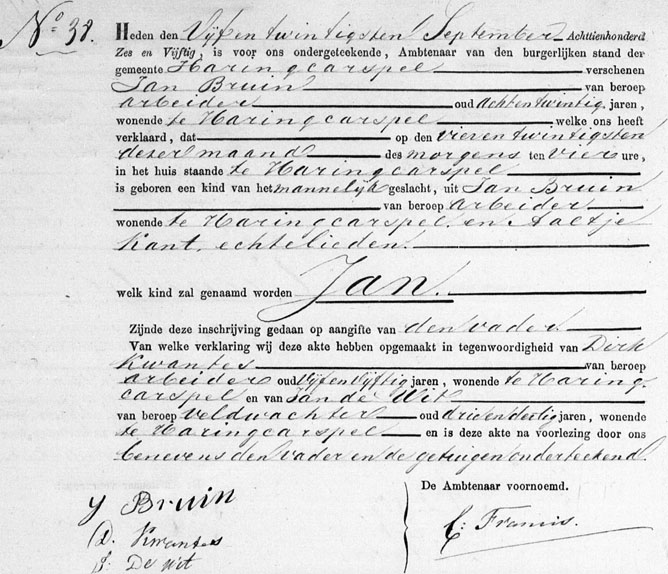 No 38.
Heden den Vijfentwintigsten September Achttienhonderd
Zes en Vijftig, is voor ons ondergeteekende, Ambtenaar van den burgerlijken stand der
gemeente Haringcarspel verschenen
Jan Bruin van beroep
arbeider oud achtentwintig jaren,
wonende te Haringcarspel welke ons heeft
verklaard, dat op den vierentwintigsten
dezer maand des morgens ten vier ure,
in het huis staande te Haringcarspel
is geboren een kind van het mannelijk geslacht, uit Jan Bruin
van beroep arbeider
wonende te Haringcarspel en Aaltje
Kant, echtelieden.
welk kind zal genaamd worden Jan.
Zijnde deze inschrijving gedaan op aangifte van den vader
Van welke verklaring wij deze akte hebben opgemaakt in tegenwoordigheid van Dirk
Kwantes van beroep
arbeider oud Vijfenvijftig jaren, wonende te Haring-
carspel en van Jan de Wit
van beroep veldwachter oud driendertig jaren, wonende
te Haringcarspel en is deze akte na voorlezing door ons
benevens den vader en de getuigen onderteekend.
De Ambtenaar voornoemd.
J Bruin
D. Kwantes
J: De Wit
C: Francis.